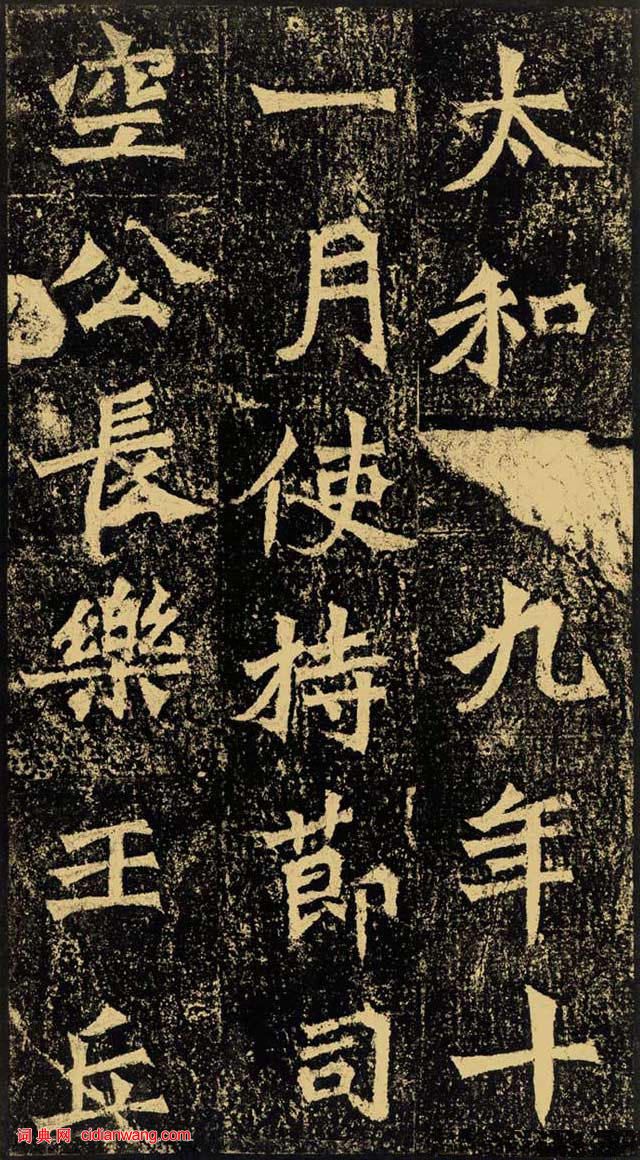 太和九年十
一月使持節司
空公長樂王丘
词典网 cidianwang.com